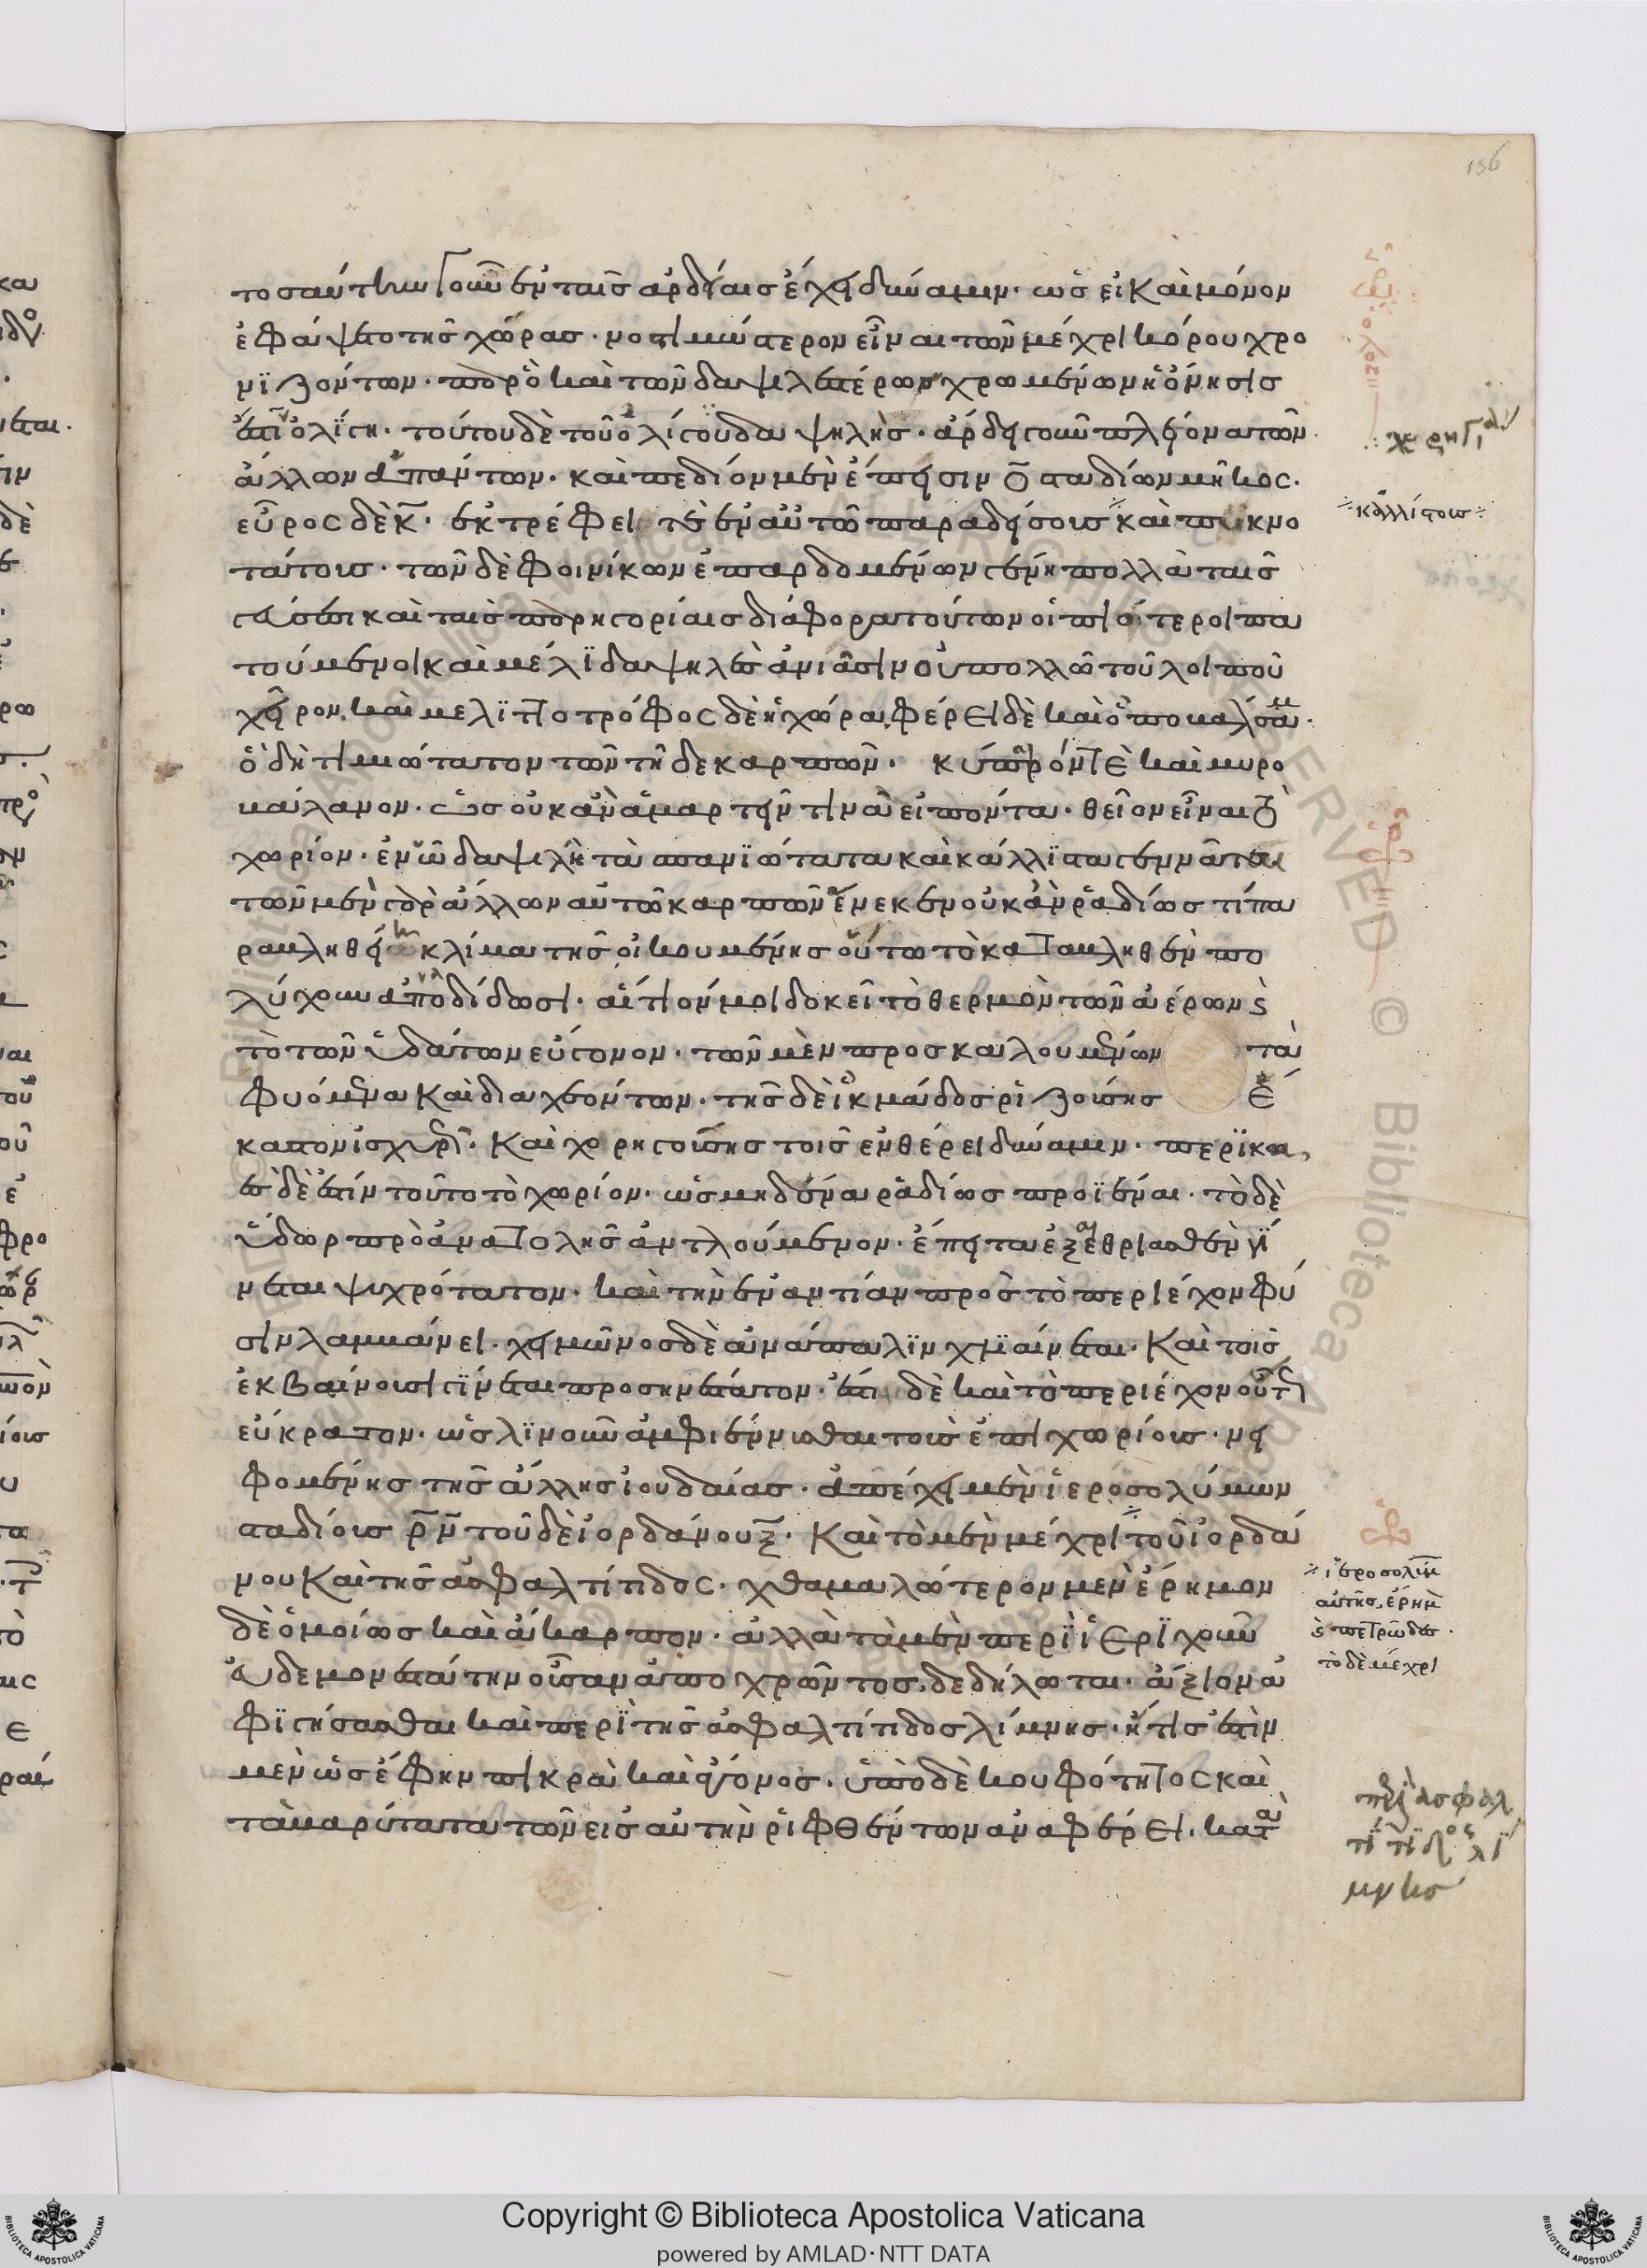 156
τοσαύτην γοῦν ἐν ταῖς ἀρδείαις ἔχει δύναμιν· ὡς εἰ καὶ μόνον
ἐφάψετο τῆς χώρας· νοτιμώτερον εἶναι τῶν μέχρι κόρου χρο
νϊζόντων· παρὸ καὶ τῶν δαψιλεστέρων χρωμένων ἡ ὄνησις
ἐστὶ ὀλίγη· τούτου δὲ τοῦ ὀλίγου δαψηλὴς· ἄρδει γοῦν πλείονα τῶν
ἄλλων ἁπάντων· καὶ πεδίον μὲν ἔπεισιν ο̄ σταδίων μῆκος·
εὖρος δὲ κ̄· ἐκτρέφει τε ἐν αὐτῶ παραδείσους καὶ πυκνο
τάτους· τῶν δὲ φοινίκων ἐπαρδομένων γένη πολλὰ ταῖς
γεύσεσι καὶ ταῖς παρηγορίαις διάφορα τούτων οἱ πιότεροι πα
τούμενοι καὶ μέλϊ δαψηλὲς ἀνιᾶσιν οὐ πολλῶ τοῦ λοιποῦ
χεῖρον, καὶ μελϊττοτρόφος δὲ ἡ χώρα, φέρει δὲ καὶ ὀποβάλσαμ·
ὃ δὴ τιμιώτατον τῶν τῆδε καρπῶν· κύπρόν τε καὶ μυρο
βάλανον· ὡς οὐκ ἂν ἁμαρτεῖν τινα εἰπόντα· θεῖον εἶναι τὸ
χωρίον· ἐν ὧ δαψιλῆ τὰ σπανϊώτατα καὶ κάλλϊστα γεννᾶται
τῶν μὲν γὰρ ἄλλων αὐτῶ καρπῶν ἕνεκεν οὐκ ἂν ῥαδίως τί πα
ραβληθείη κλίμα τῆς οἰκουμένης οὕτω τὸ καταβληθὲν πο
λύχουν ἀποδίδωσι· αἴτιόν μοι δοκεῖ τὸ θερμὸν τῶν ἀέρων καὶ
τὸ τῶν ὑδάτων εὔτονον· τῶν μὲν προσκαλουμένων τὰ
φυόμενα καὶ διαχεόντων· τῆς δὲ ἰκμάδος ῥιζούσης ἕ
καστον ἰσχυρῶ· καὶ χορηγούσης τοῖς ἐν θέρει δύναμιν· περϊκα
ὲς δέ ἐστιν τοῦτο τὸ χωρίον· ὡς μηδένα ῥαδίως προϊέναι· τὸ δὲ
ὕδωρ πρὸ ἀνατολῆς ἀντλούμενον· ἔπειτα ἐξαιθριασθὲν γί
νεται ψυχρότατον· καὶ τὴν ἐναντίαν πρὸς τὸ περιέχον φύ
σιν λαμβάνει· χειμῶνος δὲ ἀνάπαλϊν χλϊαίνεται· καὶ τοῖς
ἐκβαίνουσι γίνεται προσηνέστατον· ἔστι δὲ καὶ τὸ περιέχον οὕτως
εὔκρατον· ὡς λϊνοῦν ἀμφιέννυσθαι τοῖς ἐπιχωρίοις· νει
φομένης τῆς ἄλλης ἰουδαίας· ἀπέχει μὲν ἱεροσολύμων
σταδίοις ρ̄ν̄ τοῦ δὲ ἰορδάνου ξ̄· καὶ τὸ μὲν μέχρι τοῦ ἰορδά
νου καὶ τῆς ἀσφαλτίτιδος· χθαμαλώτερον μὲν ἔρημον
δὲ ὁμοίως καὶ ἄκαρπον· ἀλλὰ τὰ μὲν περϊ ἱερϊχοῦν
εὐδεμονεστάτην οὖσαν ἀποχρῶντος, δεδήλωται· ἄξιον ἀ
φϊγήσασθαι καὶ περϊ τῆς ἀσφαλτίτιδος λίμνης· ἥτις ἐστὶν
μὲν ὡς ἔφην πικρὰ καὶ ἄγονος· ὑπὸ δὲ κουφότητος καὶ
τὰ βαρύτατα τῶν εἰς αὐτὴν ῥιφθέντων ἀναφέρει· κατα
καλλίστους
ἱεροσολύμ
αὐτῆς, ἔρημ
καὶ πετρῶδες·
τὸ δὲ μέχρι
περὶ ἀσφαλ
τί τιδος λί
μνης
Copyright © Biblioteca Apostolica Vaticana
powered by AMLAD·NTT DATA